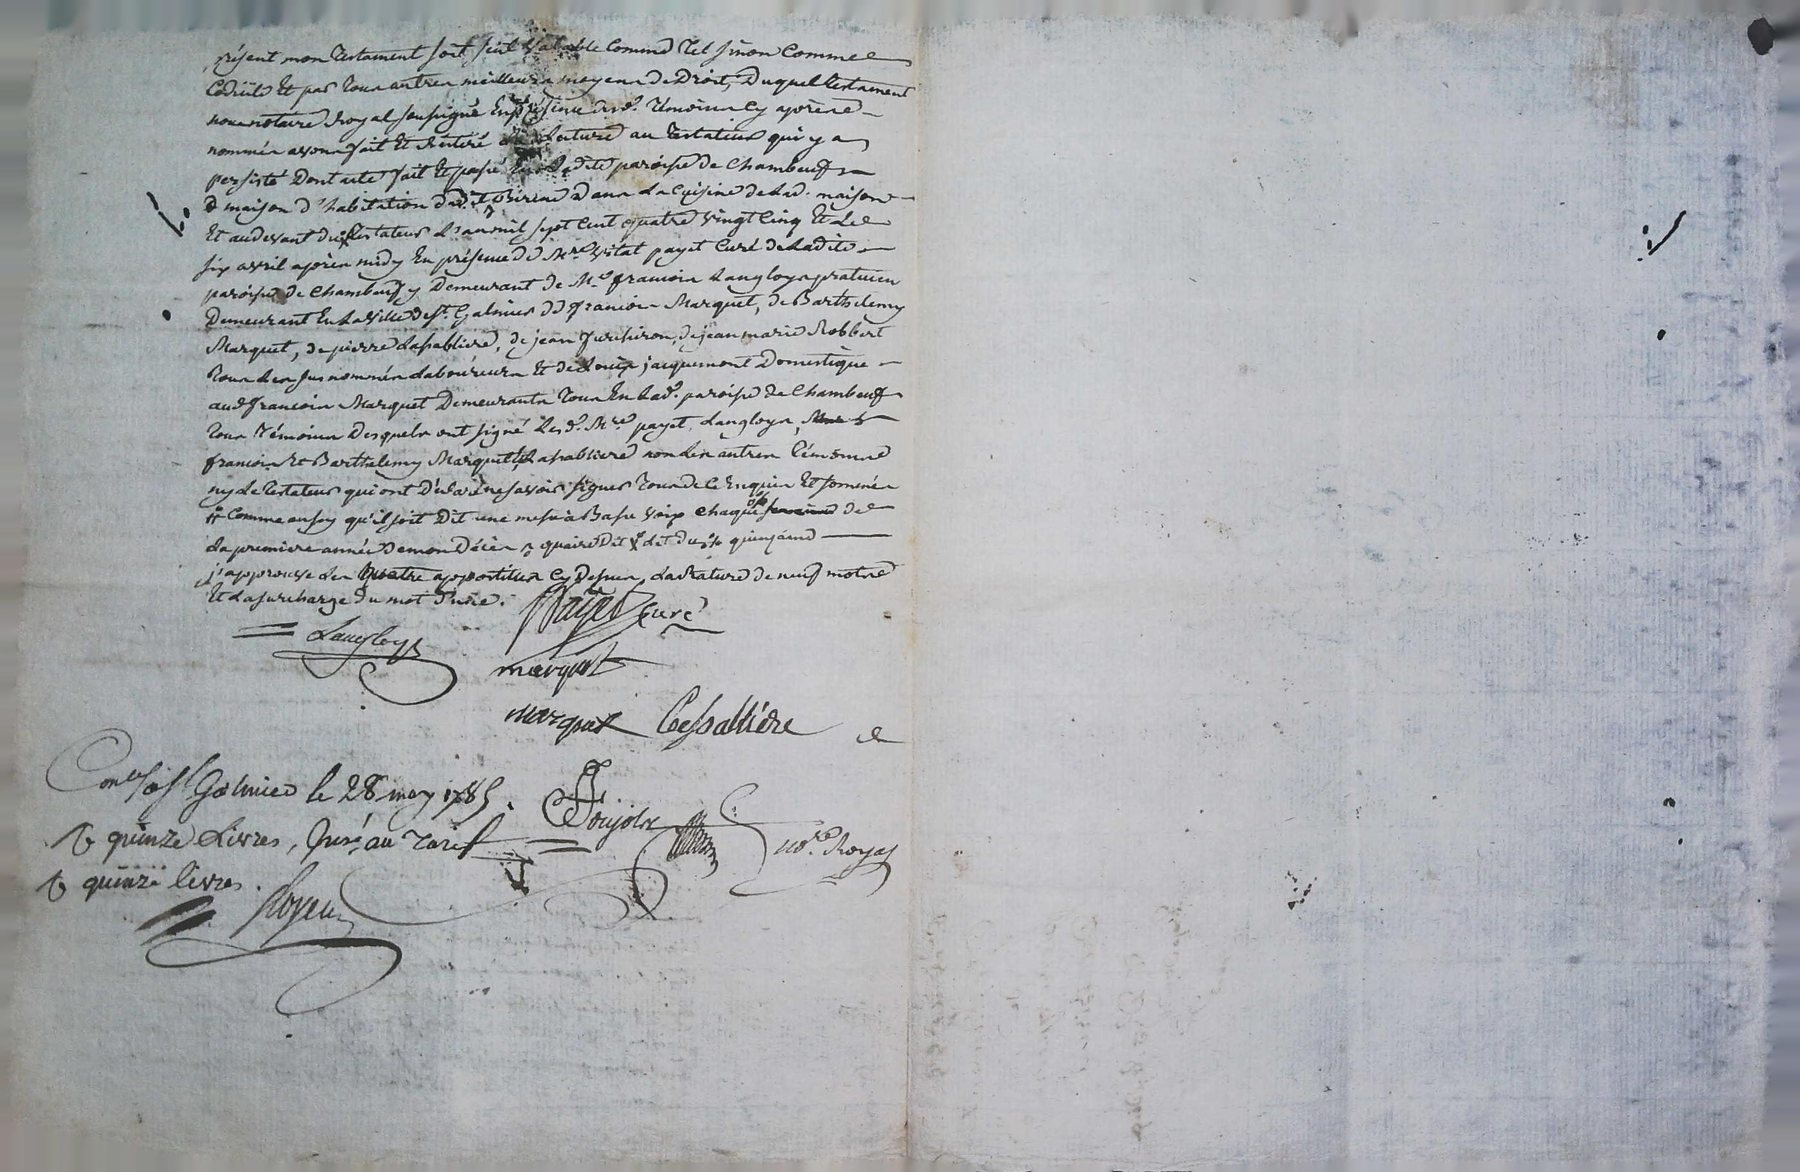 présent mon testament soit seul valable comme tel sinon comme
codicile et par tous autres meilleurs moyens de Droit, Duquel testament
nous notaire Royal soussigné en présence des d. témoins cy après
nommés avons fait et réitéré lecture au testateur qui y a
persisté Dont acte fait et passé en ladite paroisse de Chambeuf
maison d'habitation dud. dans la cuisine de lad. maison
Et audevant du testateur L'an mil sept cent quatre vingt cinq Et Le
six avril après midy En présence de Mre vital payet Curé de ladite
paroisse de Chambeuf y Demeurant de Me francois Langloys praticien
Demeurant En la ville de St. Galmier de francois Marquet, de Barthelemy
Marquet, de pierre Lassabliere, de jean de jean marie Robbert
tous les susnommés laboureurs Et de Louis jacquemont Domestique
aud francois Marquet Demeurants tous En lad. paroisse de Chambeuf
tous témoins Desquels ont signé Lesd. Mre payet, Langloys,
francois Et Barthelemy Marquet Lassabliere non les autres témoins
ny le testateur qui ont déclaré ne savoir signer tous de ce Enquis Et sommés
Comme aussy qu'il soit Dit une messe à Basse voix chaque de
La premiere année de mon Décès dit dit du
j'approuve les quatre apostilles cy Dessus, la rature de neuf mots
Et la surcharge du mot
Payet curé
Langloys
marquet
marquet Lassabliére
Con.lé à St Galmier le 28 may 1785.
quinze Livres, au tarif
quinze livres.
Poujols no.re Royal
Royeu